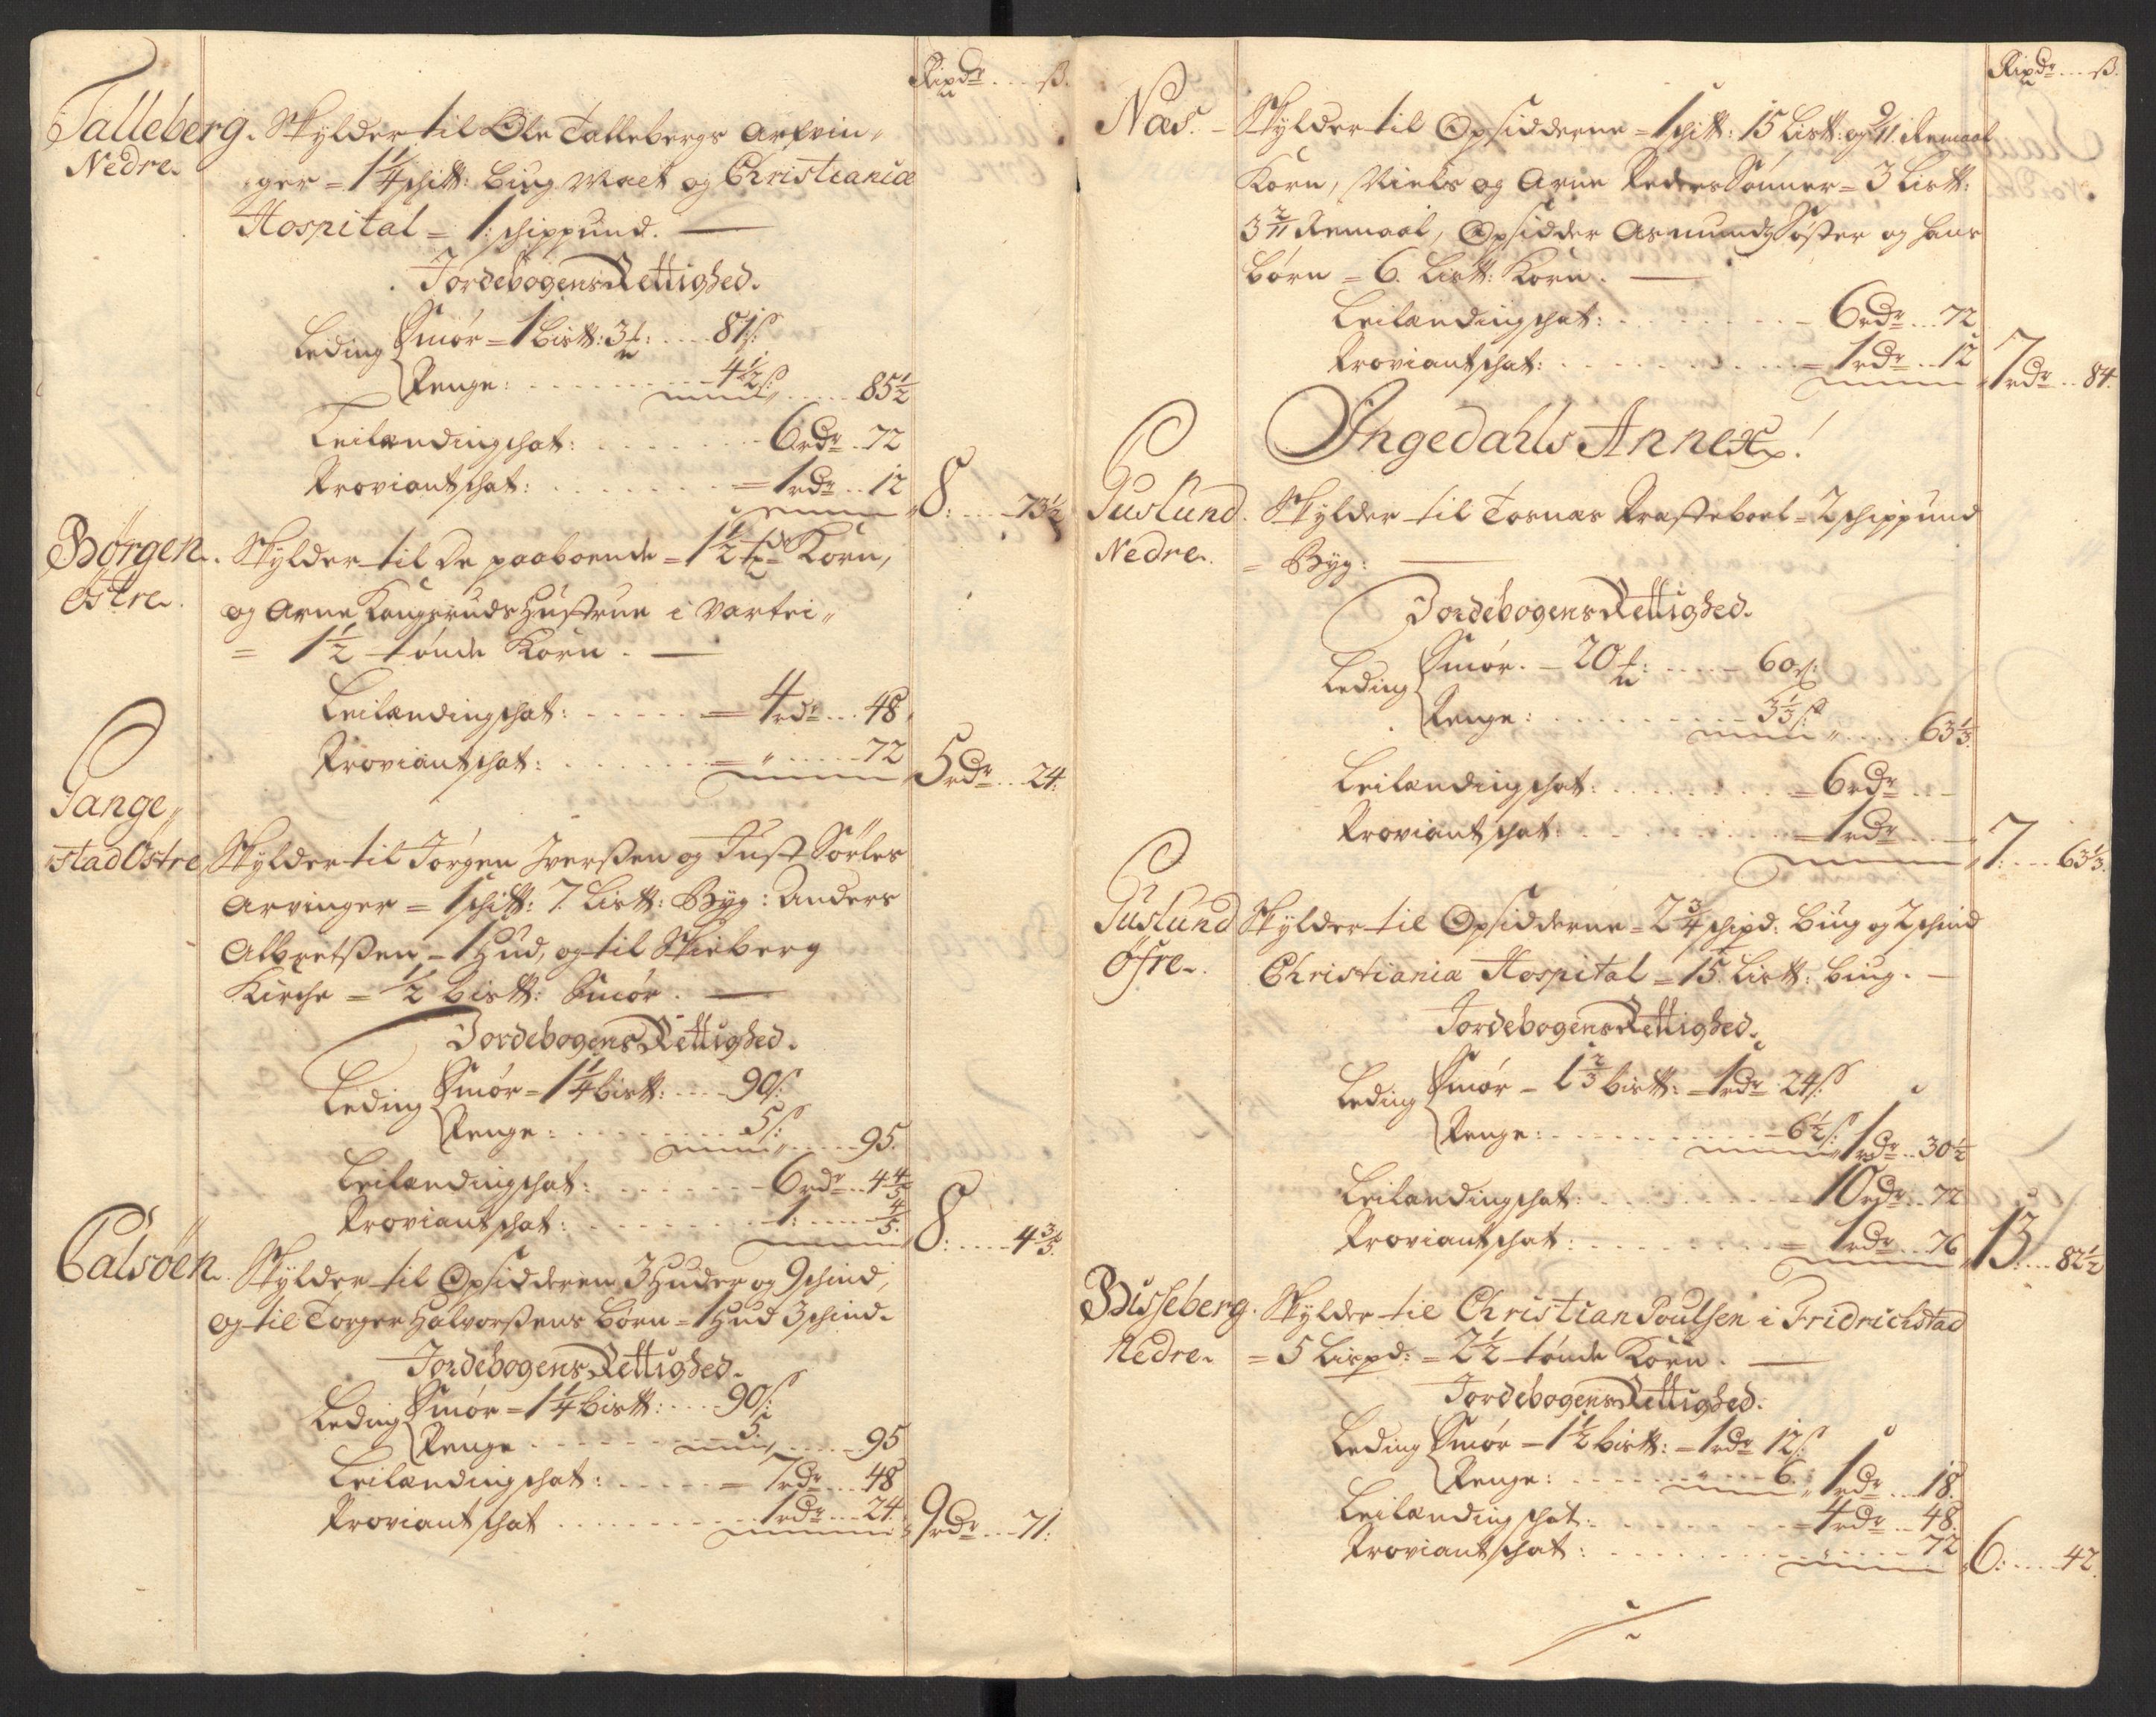 Rixdr ß.
Talleberg. Skylder til Ole Tallebergs Arfvin-
Nedre. ger = 1 1/4 schitt: Biug Malt og Christania
Hospital = 1: schippund.
Jordebogens Rettighed.
Leding Smør = 1 bistt: 3 t: 81 ß:
Penge: 4 1/2 ß: 85 1/2
Leilændingschat: 6 rdr 72
Proviantschat: 1 rdr 12 8: 73 1/2
Börgen. Skylder til De paaboende = 1 1/2 tde Korn,
Östre. og Arne Hustrue i Vartei
= 1 1/2 tønde Korn.
Leilændingschat: 4 rdr 48
Proviantschat: " 72 5 rdr 24:
Tange
stad Östre Skylder til Jørgen Iverßen og Just Sörles
Arvinger = 1 schitt: 7. Listt: Byg: Anders
Albretßen = 1 Hud, og til Skieberg
Kirche = 1/2 bistt: Smør.
Jordebogens Rettighed.
Leding Smør = 1 1/4 bistt: 90 ß:
Penge: 5 ß: 95.
Leilændingschat: 6 rdr 4 4/5
Proviantschat: 1: 4/5. 8: 4 3/5.
Calsöen. Skylder til Opsidderen 3 Huder og 9 schind,
og til Torger Halvorßens børn = 1 Hud 3 schind.
Jordebogens Rettighed.
Leding Smør = 1 1/4 bistt: 90 ß:
Penge 5. 95
Leilændingschat: 7 rdr 48
Proviantschat 1 rdr 24. 9 rdr 71:
Rixdr ß.
Næs. Skylder til Opsidderne = 1 schitt: 15 Listt: og 9/11 Remaal
Korn, Niels og Arne PedersSønner = 3 Listt:
3 2/11 Remaal, Opsidder Asmunds Søster og hans
børn = 6. Listt: Korn.
Leilændingschat: 6 rdr 72
Proviantschat: 1 rdr 12 7 rdr 84.
Ingedahls Annex!
Tuslund. Skylder til Tosnæs Præsteboel = 2 schippund
Nedre. = Byg:
Jordebogens Rettighed.
Leding Smør. = 20 t: 60 ß:
Penge: 3 1/3 ß: 63 1/3.
Leilændingschat: 6 rdr
Proviantschat: 1 rdr 7: 63 1/3.
Tuslund Skylder til Opsidderne = 2 3/4 schipd: Biug og 2 schind
Öfre. Christiania Hospital = 15 Listt: Biug.
Jordebogens Rettighed.
Leding Smør = 1 2/3 bistt: = 1 rdr 24 ß:
Penge: 6 1/2 ß: 1 rdr 30 1/2
Leilændingschat: 10 rdr 72
Proviantschat: 1 rdr 76 13: 82 1/2
Bisseberg. Skylder til Christian Poulsen i Fridrichstad
Nedre. = 5 Lispd: = 2 1/2 tønde Korn.
Jordebogens Rettighed.
Leding Smør = 1 1/2 bistt: = 1 rdr 12 ß:
Penge: 6. 1 rdr 18.
Leilændingschat: 4 rdr 48.
Proviantschat: 72 6: 42.